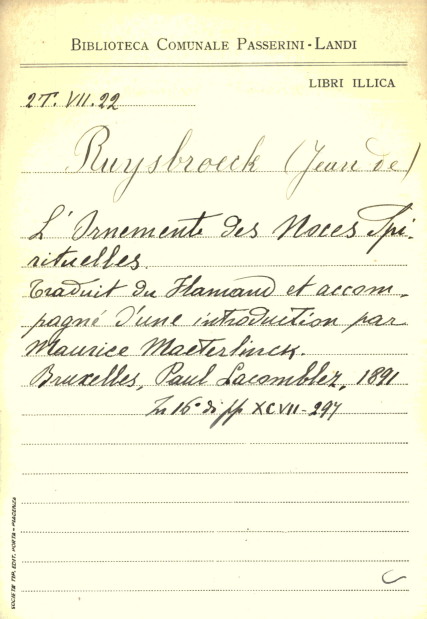 BIBLIOTECA COMUNALE PASSERINI-LANDI
LIBRI ILLICA
2T. VII. 22
Ruysbroeck (Jean de)
L'Ornemente des Noces Spi-
rituelles.
Traduit du Flamand et accom-
pagné d'une introduction par
Maurice Maeterlinck.
Bruxelles, Paul Lacomblez, 1891
In 16° di pp XCVII-297
SOCIETÀ TIP. EDIT. PORTA - PIACENZA